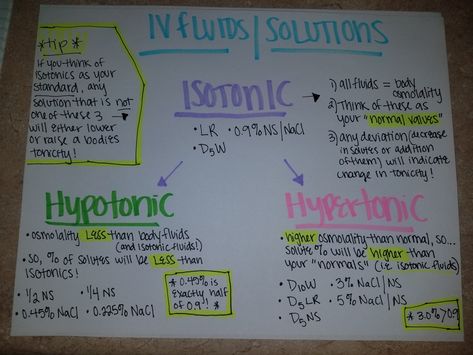 IV FLUIDS/SOLUTIONS
*tip*
If you think of
isotonics as your
standard, any
solution that is not
one of these 3
will either lower
or raise a bodies
tonicity!
ISOTONIC
• LR • 0.9% NS/NaCl
• D5W
1) all fluids = body
osmolality
2) Think of these as
your "normal values"
3) any deviation (decrease
in solutes or addition
of them) will indicate
change in tonicity!
Hypotonic
• osmolality Less than body fluids
(and isotonic fluids!)
• so, % of solutes will be Less than
isotonics!
• 1/2 NS • 1/4 NS
• 0.45% NaCl • 0.225% NaCl
* 0.45% is
exactly half
of 0.9%! *
Hypertonic
• higher osmolality than normal, so...
solute % will be higher than
your "normals" (i.e. isotonic fluids)
• D10W • 3% NaCl/NS
• D5LR • 5% NaCl/NS
• D5NS
* 3.0% > 0.9